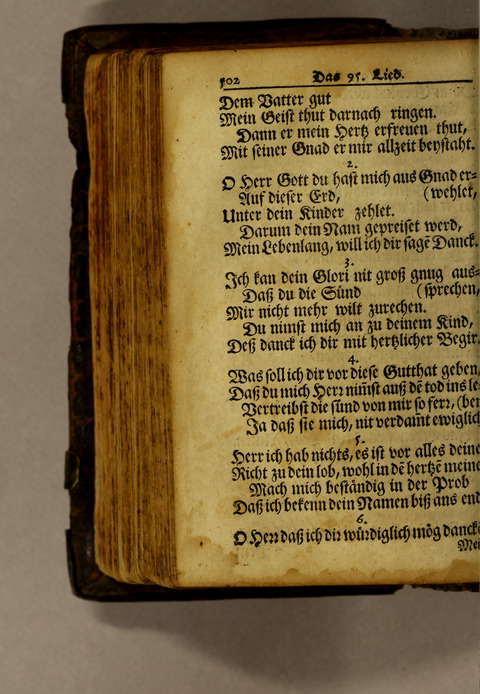 502 Das 95. Lied.
Dem Vatter gut
Mein Geist thut darnach ringen.
Dann er mein Hertz erfreuen thut,
Mit seiner Gnad er mir allzeit beystaht.
2.
O Herr Gott du hast mich aus Gnad er-
Auf dieser Erd, (wehlet,
Unter dein Kinder zehlet.
Darum dein Nam gepreiset werd,
Mein Lebenlang, will ich dir sagē Danck.
3.
Ich kan dein Glori nit groß gnug aus-
Daß du die Sünd (sprechen,
Mir nicht mehr wilt zurechen.
Du nimst mich an zu deinem Kind,
Deß danck ich dir mit hertzlicher Begir.
4.
Was soll ich dir vor diese Gutthat geben,
Daß du mich Herr nim̄st auß dē tod ins le-
Vertreibst die sünd von mir so ferr, (ben
Ja daß sie mich, nit verdam̄t ewiglich
5.
Herr ich hab nichts, es ist vor alles deine
Richt zu dein lob, wohl in dē hertzē meine
Mach mich beständig in der Prob
Daß ich bekenn dein Namen biß ans end
6.
O Herr daß ich dir würdiglich mög dancke
Mei